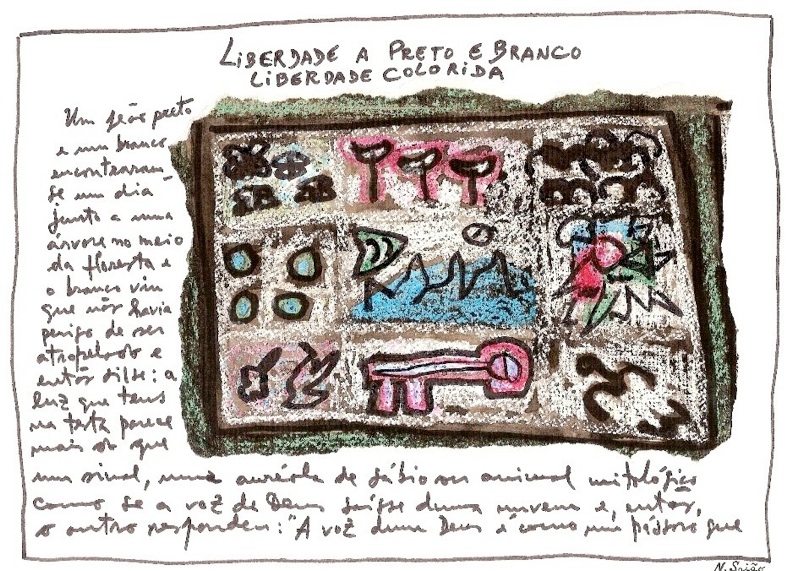 LIBERDADE A PRETO E BRANCO
LIBERDADE COLORIDA
Um preto
e um branco
encontraram-
se um dia
junto a uma
árvore no meio
da floresta e
o branco viu
que não havia
perigo de ser
atropelado e
então disse: a
luz que tens
na testa parece
mais do que
um sinal, uma auréola de sábio ou animal mitológico
como se a voz de Deus saísse duma nuvem e, então,
o outro respondeu: "A voz dum Deus é como um pássaro que
N. Saião